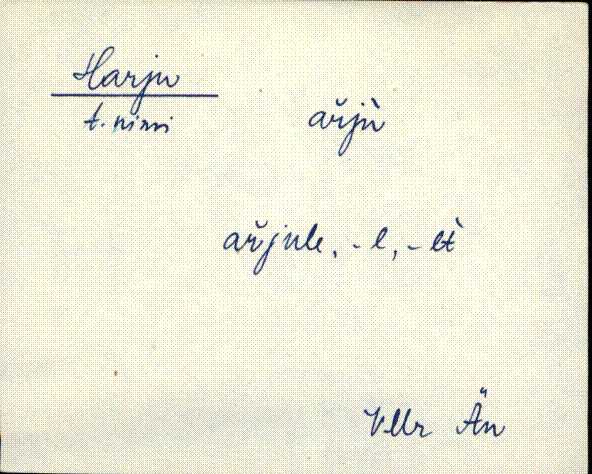 Harju
t. nimi
ar̆jù
ar̆jule, -l, -lt̀
VMr Än